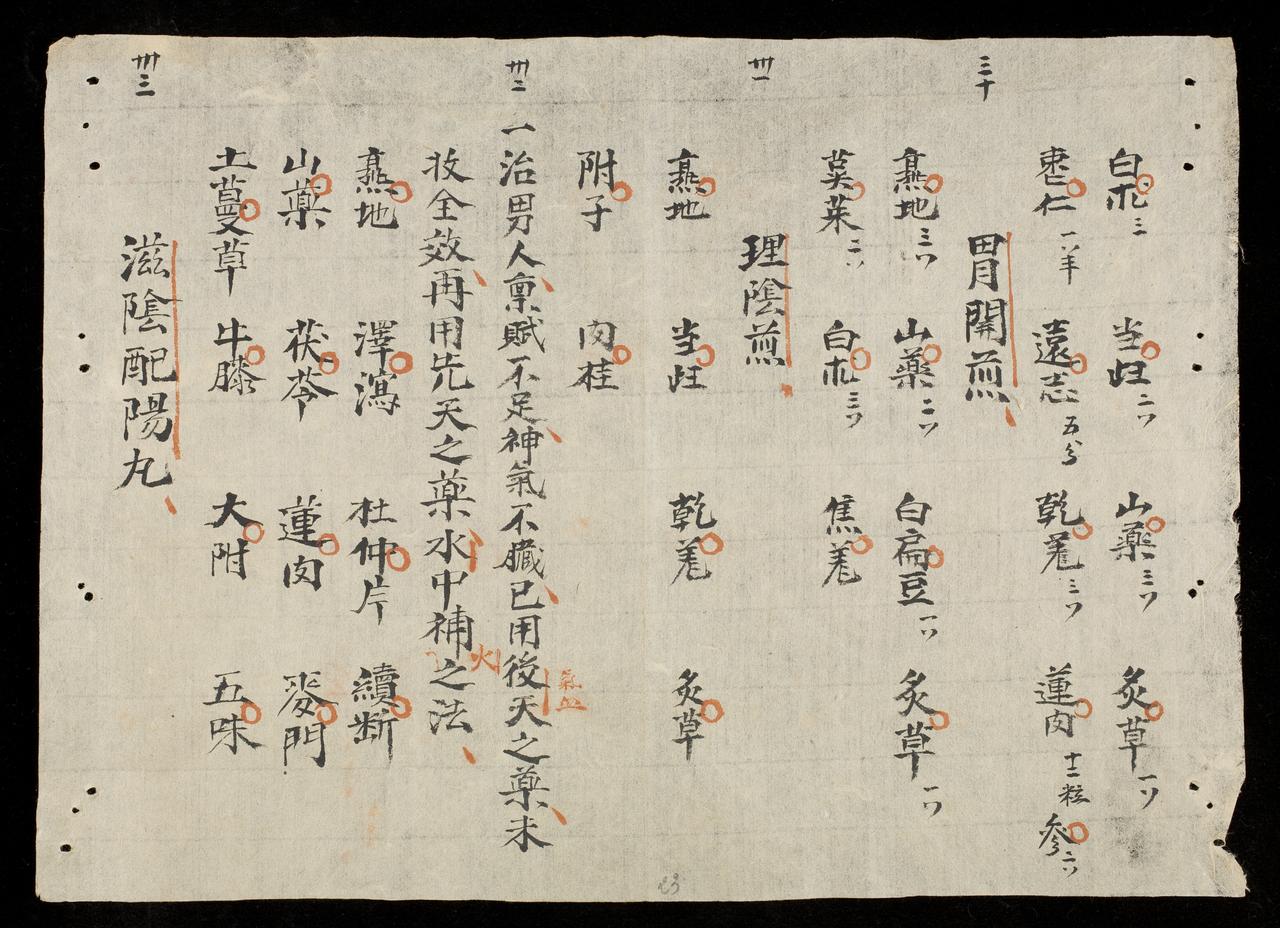 白朮三 当归二 山藥三 炙草一
枣仁一羊 遠志五分 乾羌三 蓮肉十二粒 参六
三十
胃關煎
熟地三 山藥二 白扁豆一 炙草一
茱萸二 白朮三 焦羌
卅一
理陰煎
熟地 当归 乾羌 炙草
附子 肉桂
卅二
一治男人禀賦不足神氣不臟已用後天之藥未
氣血
收全效再用先天之藥水中補之法
火
熟地 澤瀉 杜仲片 續断
山藥 茯苓 蓮肉 麥門
土蔓草 牛膝 大附 五味
卅三
滋陰配陽丸